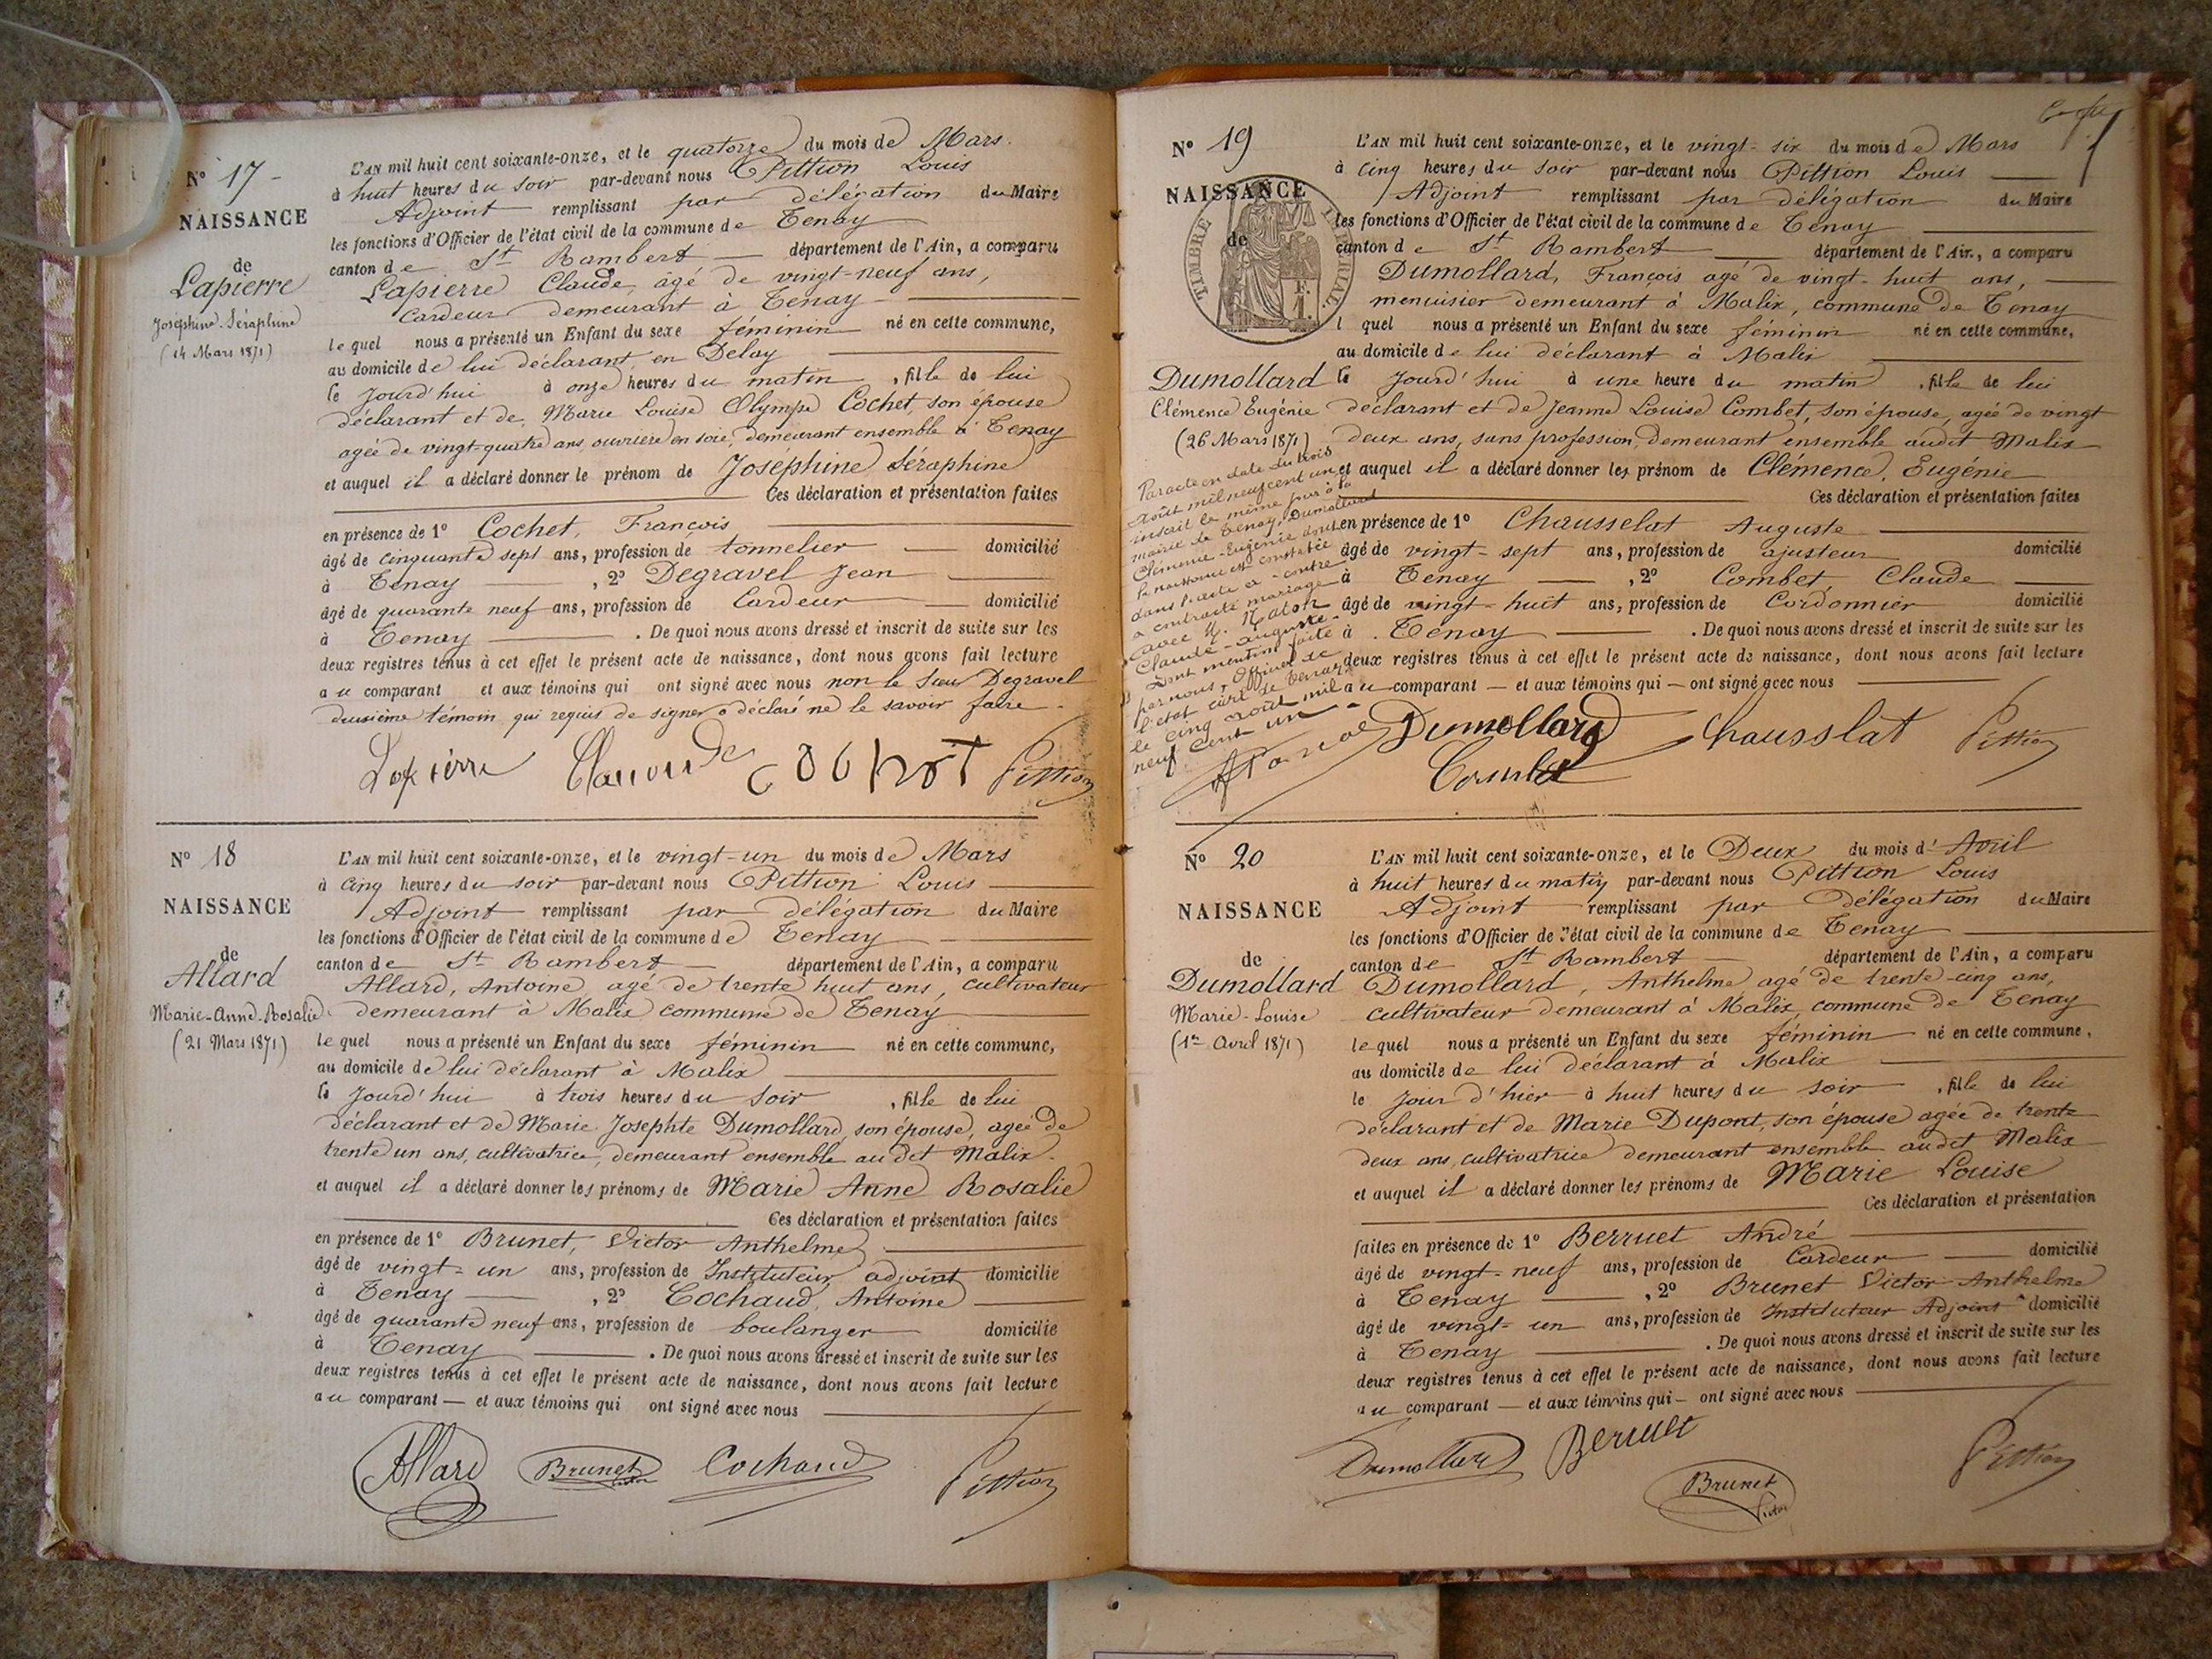 N° 17 -
NAISSANCE
de
Lapierre
Joséphine-Séraphine
(14 Mars 1871)
L'AN mil huit cent soixante-onze, et le quatorze du mois de Mars.
à huit heures du soir par-devant nous Pittion Louis
Adjoint remplissant par délégation du Maire
les fonctions d'Officier de l'état civil de la commune de Tenay
canton de St Rambert département de l'Ain, a comparu
Lapierre Claude, âgé de vingt-neuf ans,
Cardeur demeurant à Tenay
lequel nous a présenté un Enfant du sexe féminin né en cette commune,
au domicile de lui déclarant, en Delay
le jourd'hui à onze heures du matin, fille de lui
déclarant et de Marie Louise Olympe Cochet, son épouse
agée de vingt-quatre ans, ouvrière en soie, demeurant ensemble à Tenay
et auquel il a déclaré donner le prénom de Joséphine Séraphine
Ces déclaration et présentation faites
en présence de 1° Cochet, François
âgé de cinquante sept ans, profession de tonnelier domicilié
à Tenay, 2° Degravel Jean
âgé de quarante neuf ans, profession de Cardeur domicilié
à Tenay. De quoi nous avons dressé et inscrit de suite sur les
deux registres tenus à cet effet le présent acte de naissance, dont nous avons fait lecture
au comparant et aux témoins qui ont signé avec nous non le Sieur Degravel
deuxième témoin qui requis de signer a déclaré ne le savoir faire.
Lapierre Claude Cochet Pittion
N° 18
NAISSANCE
de
Allard
Marie-Anne-Rosalie
(21 Mars 1871)
L'AN mil huit cent soixante-onze, et le vingt-un du mois de Mars
à cinq heures du soir par-devant nous Pittion Louis
Adjoint remplissant par délégation du Maire
les fonctions d'Officier de l'état civil de la commune de Tenay
canton de St Rambert département de l'Ain, a comparu
Allard, Antoine, agé de trente huit ans, cultivateur
demeurant à Malix commune de Tenay
lequel nous a présenté un Enfant du sexe féminin né en cette commune,
au domicile de lui déclarant à Malix
le jourd'hui à trois heures du soir, fille de lui
déclarant et de Marie Josephte Dumollard, son épouse, agée de
trente un ans, cultivatrice, demeurant ensemble au dit Malix.
et auquel il a déclaré donner les prénoms de Marie Anne Rosalie
Ces déclaration et présentation faites
en présence de 1° Brunet, Victor Anthelme
âgé de vingt-un ans, profession de Instituteur adjoint domicilié
à Tenay, 2° Cochaud, Antoine
âgé de quarante neuf ans, profession de boulanger domicilié
à Tenay. De quoi nous avons dressé et inscrit de suite sur les
deux registres tenus à cet effet le présent acte de naissance, dont nous avons fait lecture
au comparant — et aux témoins qui ont signé avec nous
Allard Brunet Victor Cochaud Pittion
N° 19
NAISSANCE
de
TIMBRE IMPÉRIAL
Dumollard
Clémence Eugénie
(26 Mars 1871)
Par acte en date du trois
Août mil neuf cent un,
inscrit le même jour à la
mairie de Tenay, Dumollard
Clémence-Eugénie dont
la naissance est constatée
dans l'acte ci-contre
a contracté mariage
avec
Claude-Auguste.
Dont mention faite
par nous, Officier de
l'état civil de Tenay
le cinq août mil
neuf cent un.
L'AN mil huit cent soixante-onze, et le vingt-six du mois de Mars
à cinq heures du soir par-devant nous Pittion Louis
Adjoint remplissant par délégation du Maire
les fonctions d'Officier de l'état civil de la commune de Tenay
canton de St Rambert département de l'Ain, a comparu
Dumollard, François agé de vingt-huit ans,
menuisier demeurant à Malix, commune de Tenay
lequel nous a présenté un Enfant du sexe féminin né en cette commune,
au domicile de lui déclarant à Malix
le jourd'hui à une heure du matin, fille de lui
déclarant et de Jeanne Louise Combet, son épouse, agée de vingt
deux ans, sans profession, demeurant ensemble audit Malix
et auquel il a déclaré donner les prénom de Clémence, Eugénie
Ces déclaration et présentation faites
en présence de 1° Chausselat Auguste
âgé de vingt-sept ans, profession de ajusteur domicilié
à Tenay, 2° Combet, Claude
âgé de vingt-huit ans, profession de Cordonnier domicilié
à Tenay. De quoi nous avons dressé et inscrit de suite sur les
deux registres tenus à cet effet le présent acte de naissance, dont nous avons fait lecture
au comparant — et aux témoins qui — ont signé avec nous
Dumollard Chausslat Pittion
Combet
N° 20
NAISSANCE
de
Dumollard
Marie-Louise
(1er Avril 1871)
L'AN mil huit cent soixante-onze, et le Deux du mois d'Avril
à huit heures du matin par-devant nous Pittion Louis
Adjoint remplissant par Délégation du Maire
les fonctions d'Officier de l'état civil de la commune de Tenay
canton de St Rambert département de l'Ain, a comparu
Dumollard, Anthelme agé de trente-cinq ans,
cultivateur demeurant à Malix, commune de Tenay
lequel nous a présenté un Enfant du sexe féminin né en cette commune,
au domicile de lui déclarant à Malix
le jour d'hier à huit heures du soir, fille de lui
déclarant et de Marie Dupont, son épouse agée de trente
deux ans, cultivatrice demeurant ensemble audit Malix
et auquel il a déclaré donner les prénoms de Marie Louise
Ces déclaration et présentation
faites en présence de 1° Berruet André
âgé de vingt-neuf ans, profession de Cardeur domicilié
à Tenay, 2° Brunet Victor Anthelme
âgé de vingt-un ans, profession de Instituteur Adjoint domicilié
à Tenay. De quoi nous avons dressé et inscrit de suite sur les
deux registres tenus à cet effet le présent acte de naissance, dont nous avons fait lecture
au comparant — et aux témoins qui — ont signé avec nous
Dumollard Berruet Pittion
Brunet Victor